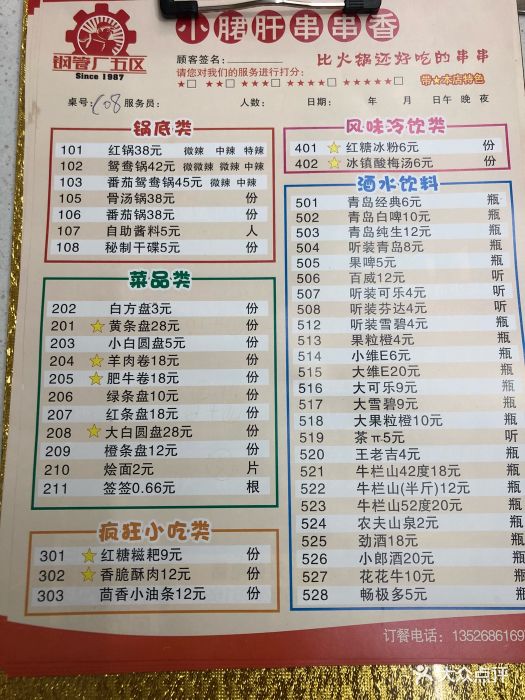 钢管厂五区
Since 1987
小腰肝串串香
顾客签名:
比火锅还好吃的串串
请您对我们的服务进行打分:
带★本店特色
桌号: 108 服务员: 人数: 日期: 年 月 日午 晚 夜
锅底类
101 红锅38元 微辣 中辣 特辣
102 鸳鸯锅42元 微微辣 微辣 中辣
103 番茄鸳鸯锅45元 微辣 中辣
105 骨汤锅38元 份
106 番茄锅38元 份
107 自助酱料5元 人
108 秘制干碟5元 份
菜品类
202 白方盘3元 份
201 ★黄条盘28元 份
203 小白圆盘5元 份
204 ★羊肉卷18元 份
205 ★肥牛卷18元 份
206 绿条盘10元 份
207 红条盘18元 份
208 ★大白圆盘28元 份
209 橙条盘12元 份
210 烩面2元 片
211 签签0.66元 根
疯狂小吃类
301 ★红糖糍粑9元 份
302 ★香脆酥肉12元 份
303 茴香小油条12元 份
风味冷饮类
401 ★红糖冰粉6元 份
402 ★冰镇酸梅汤6元 份
酒水饮料
501 青岛经典6元 瓶
502 青岛白啤10元 瓶
503 青岛纯生12元 瓶
504 听装青岛8元 瓶
505 果啤5元 瓶
506 百威12元 听
507 听装可乐4元 听
508 听装芬达4元 听
512 听装雪碧4元 听
513 果粒橙4元 瓶
514 小维E6元 瓶
515 大维E20元 瓶
516 大可乐9元 瓶
517 大雪碧9元 瓶
518 大果粒橙10元 瓶
519 茶π5元 听
520 王老吉4元 瓶
521 牛栏山42度18元 瓶
522 牛栏山(半斤)12元 瓶
523 牛栏山52度20元 瓶
524 农夫山泉2元 瓶
525 劲酒18元 瓶
526 小郎酒20元 瓶
527 花花牛10元 瓶
528 畅极多5元 瓶
订餐电话: 1352686169
大众点评